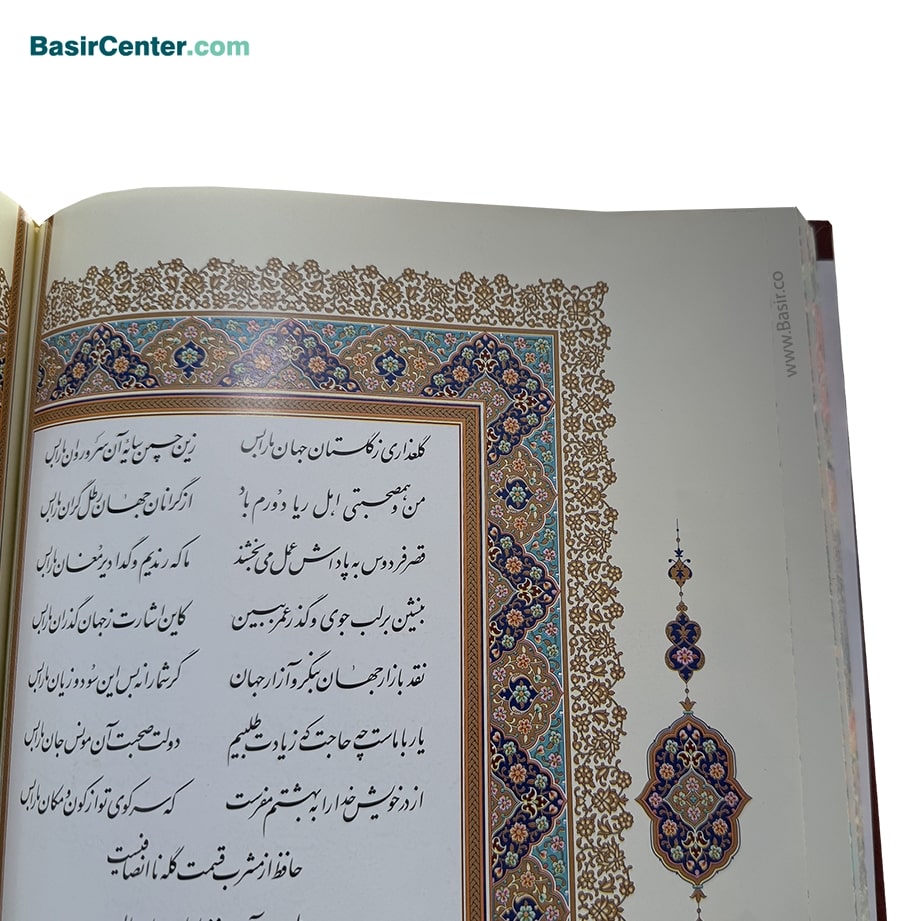 BasirCenter.com
www.Basir.co
گلعذاری ز گلستان جهان ما را بس زین چمن سایه آن سرو روان ما را بس
من و همصحبتی اهل ریا دورم باد از گرانان جهان رطل گران ما را بس
قصر فردوس به پاداش عمل می‌بخشند ما که رندیم و گدا دیر مغان ما را بس
بنشین بر لب جوی و گذر عمر ببین کاین اشارت ز جهان گذران ما را بس
نقد بازار جهان بنگر و آزار جهان گر شما را نه بس این سود و زیان ما را بس
یار با ماست چه حاجت که زیادت طلبیم دولت صحبت آن مونس جان ما را بس
از در خویش خدا را به بهشتم مفرست که سر کوی تو از کون و مکان ما را بس
حافظ از مشرب قسمت گله ناانصافیست